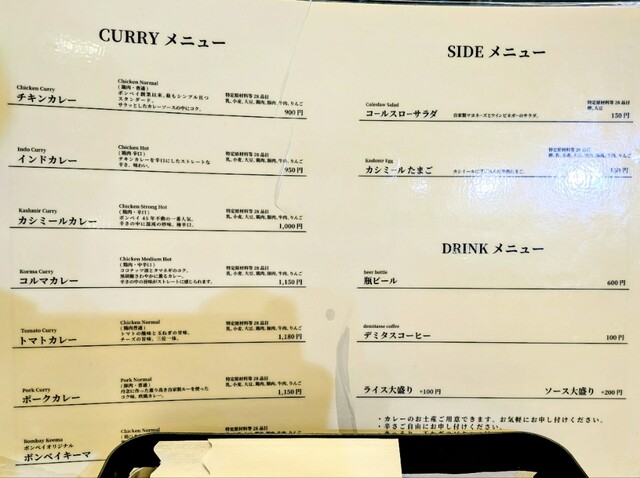 CURRY メニュー
Chicken Curry
チキンカレー
Chicken Normal
(鶏肉・普通)
ボンベイ創業以来、最もシンプル且つ
スタンダード。
サラッとしたカレーソースの中にコク。
特定原材料等28品目
乳、小麦、大豆、鶏肉、豚肉、牛肉、りんご
900円
Indo Curry
インドカレー
Chicken Hot
(鶏肉 辛口)
チキンカレーを辛口にしたストレートな
辛さ、味わい。
特定原材料等28品目
乳、小麦、大豆、鶏肉、豚肉、牛肉、りんご
950円
Kashmir Curry
カシミールカレー
Chicken Strong Hot
(鶏肉・辛口)
ボンベイ45年不動の一番人気。
辛さの中に深淡の妙味、極辛口。
特定原材料等28品目
乳、小麦、大豆、鶏肉、豚肉、牛肉、りんご
1,000円
Korma Curry
コルマカレー
Chicken Medium Hot
(鶏肉・中辛口)
ココナッツ油とタマネギのコク。
黒胡椒さわやかに薫るカレー。
辛さの中の旨味がストレートに感じられます。
特定原材料等28品目
乳、小麦、大豆、鶏肉、豚肉、牛肉、りんご
1,150円
Tomato Curry
トマトカレー
Chicken Normal
(鶏肉普通)
トマトの酸味と玉ねぎの甘味。
チーズの旨味、三位一体。
特定原材料等28品目
乳、小麦、大豆、鶏肉、豚肉、牛肉、りんご
1,180円
Pork Curry
ポークカレー
Pork Normal
(豚肉・普通)
丹念に作った薫り高き自家製ルーを使った
コク味、欧風カレー。
特定原材料等28品目
乳、小麦、大豆、鶏肉、豚肉、牛肉、りんご
1,150円
Bombay Keema
ボンベイオリジナル
ボンベイキーマ
Chicken
特定原材料等28品目
SIDE メニュー
Coleslaw Salad
コールスローサラダ
自家製マヨネーズとワインビネガーのサラダ。
特定原材料等28品目
卵、大豆
150円
Kashmir Egg
カシミールたまご
特定原材料等28品目
150円
DRINK メニュー
beer bottle
瓶ビール
600円
demitasse coffee
デミタスコーヒー
100円
ライス大盛り +100円
ソース大盛り +200円
・カレーのお土産ご用意できます。お気軽にお申し付けください。
・辛さご自由にお申し付けください。